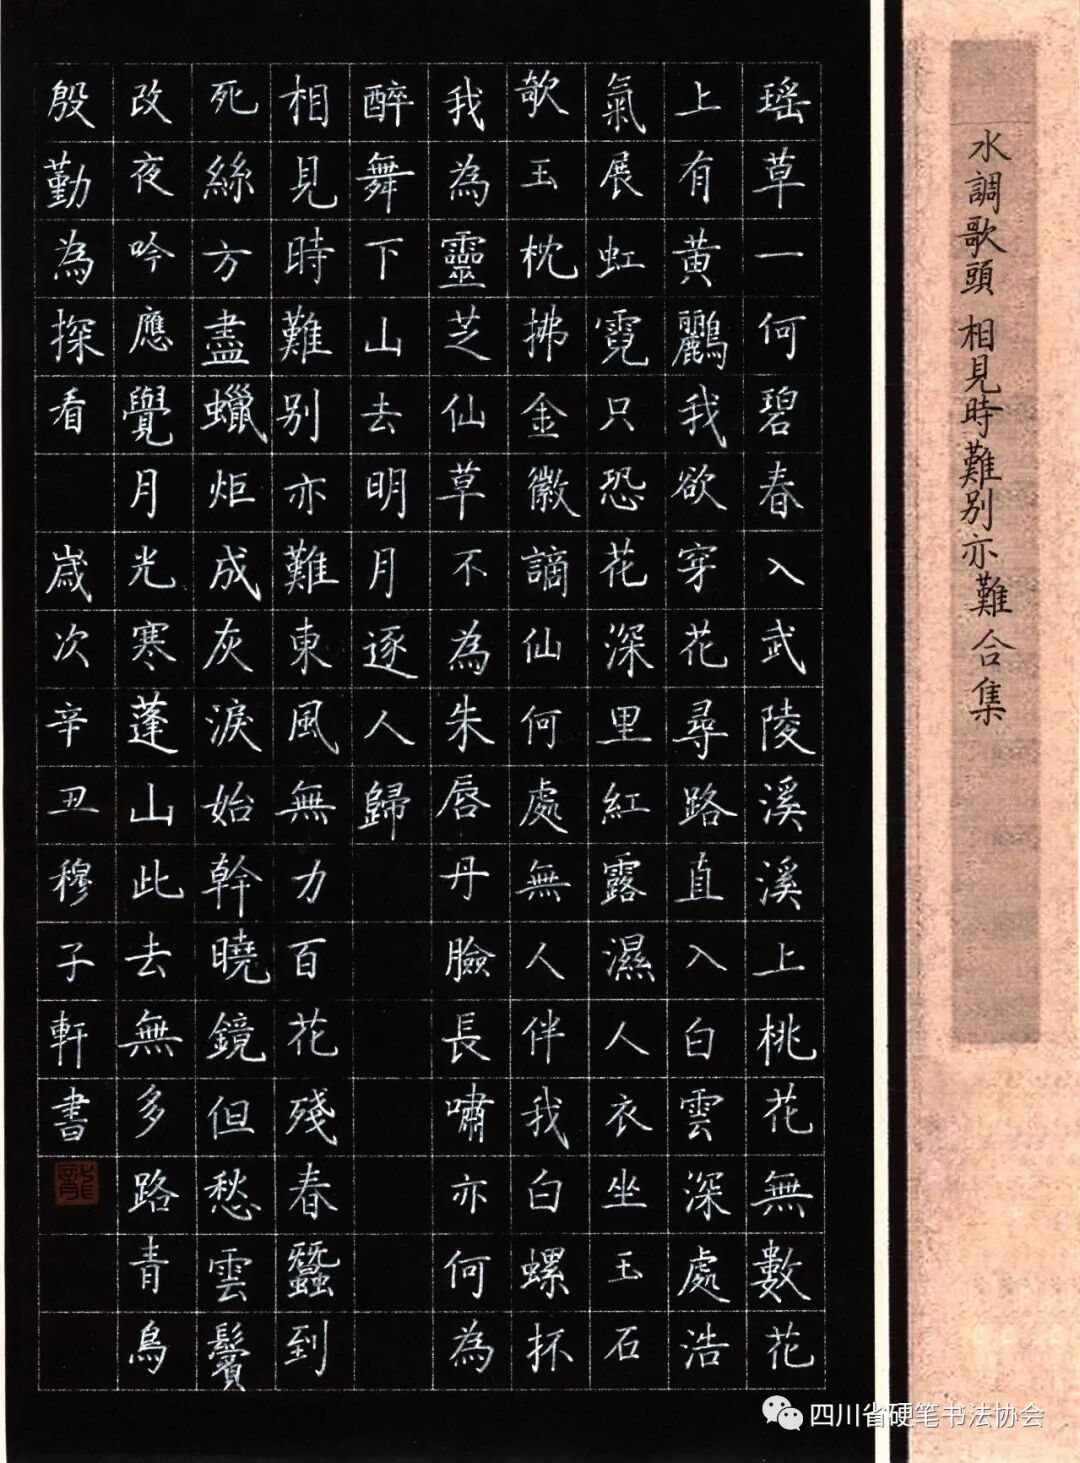 水調歌頭 相見時難别亦難 合集
瑶草一何碧春入武陵溪溪上桃花無數花
上有黄鸝我欲穿花尋路直入白雲深處浩
氣展虹霓只恐花深里紅露濕人衣坐玉石
欹玉枕拂金徽謫仙何處無人伴我白螺杯
我為靈芝仙草不為朱唇丹臉長嘯亦何為
醉舞下山去明月逐人歸
相見時難别亦難東風無力百花殘春蠶到
死絲方盡蠟炬成灰淚始幹曉鏡但愁雲鬢
改夜吟應覺月光寒蓬山此去無多路青鳥
殷勤為探看 嵗次辛丑穆子軒書
龍
四川省硬笔书法协会